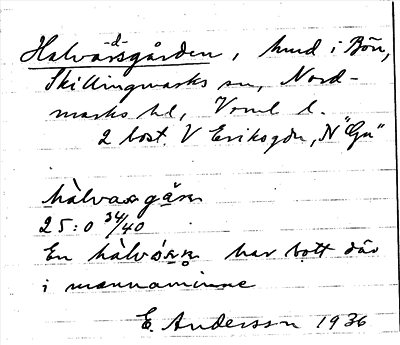 -d-
Halvarsgården, hmd i Bön,
Skillingmarks sn, Nord-
marks hd, Vrml l.
2 bost. V Eriksgdn, N "Gn"
hàlvaṣgåṇ
25:0 34/40
En hàlvó bott där
i mannaminne
E. Andersson 1936